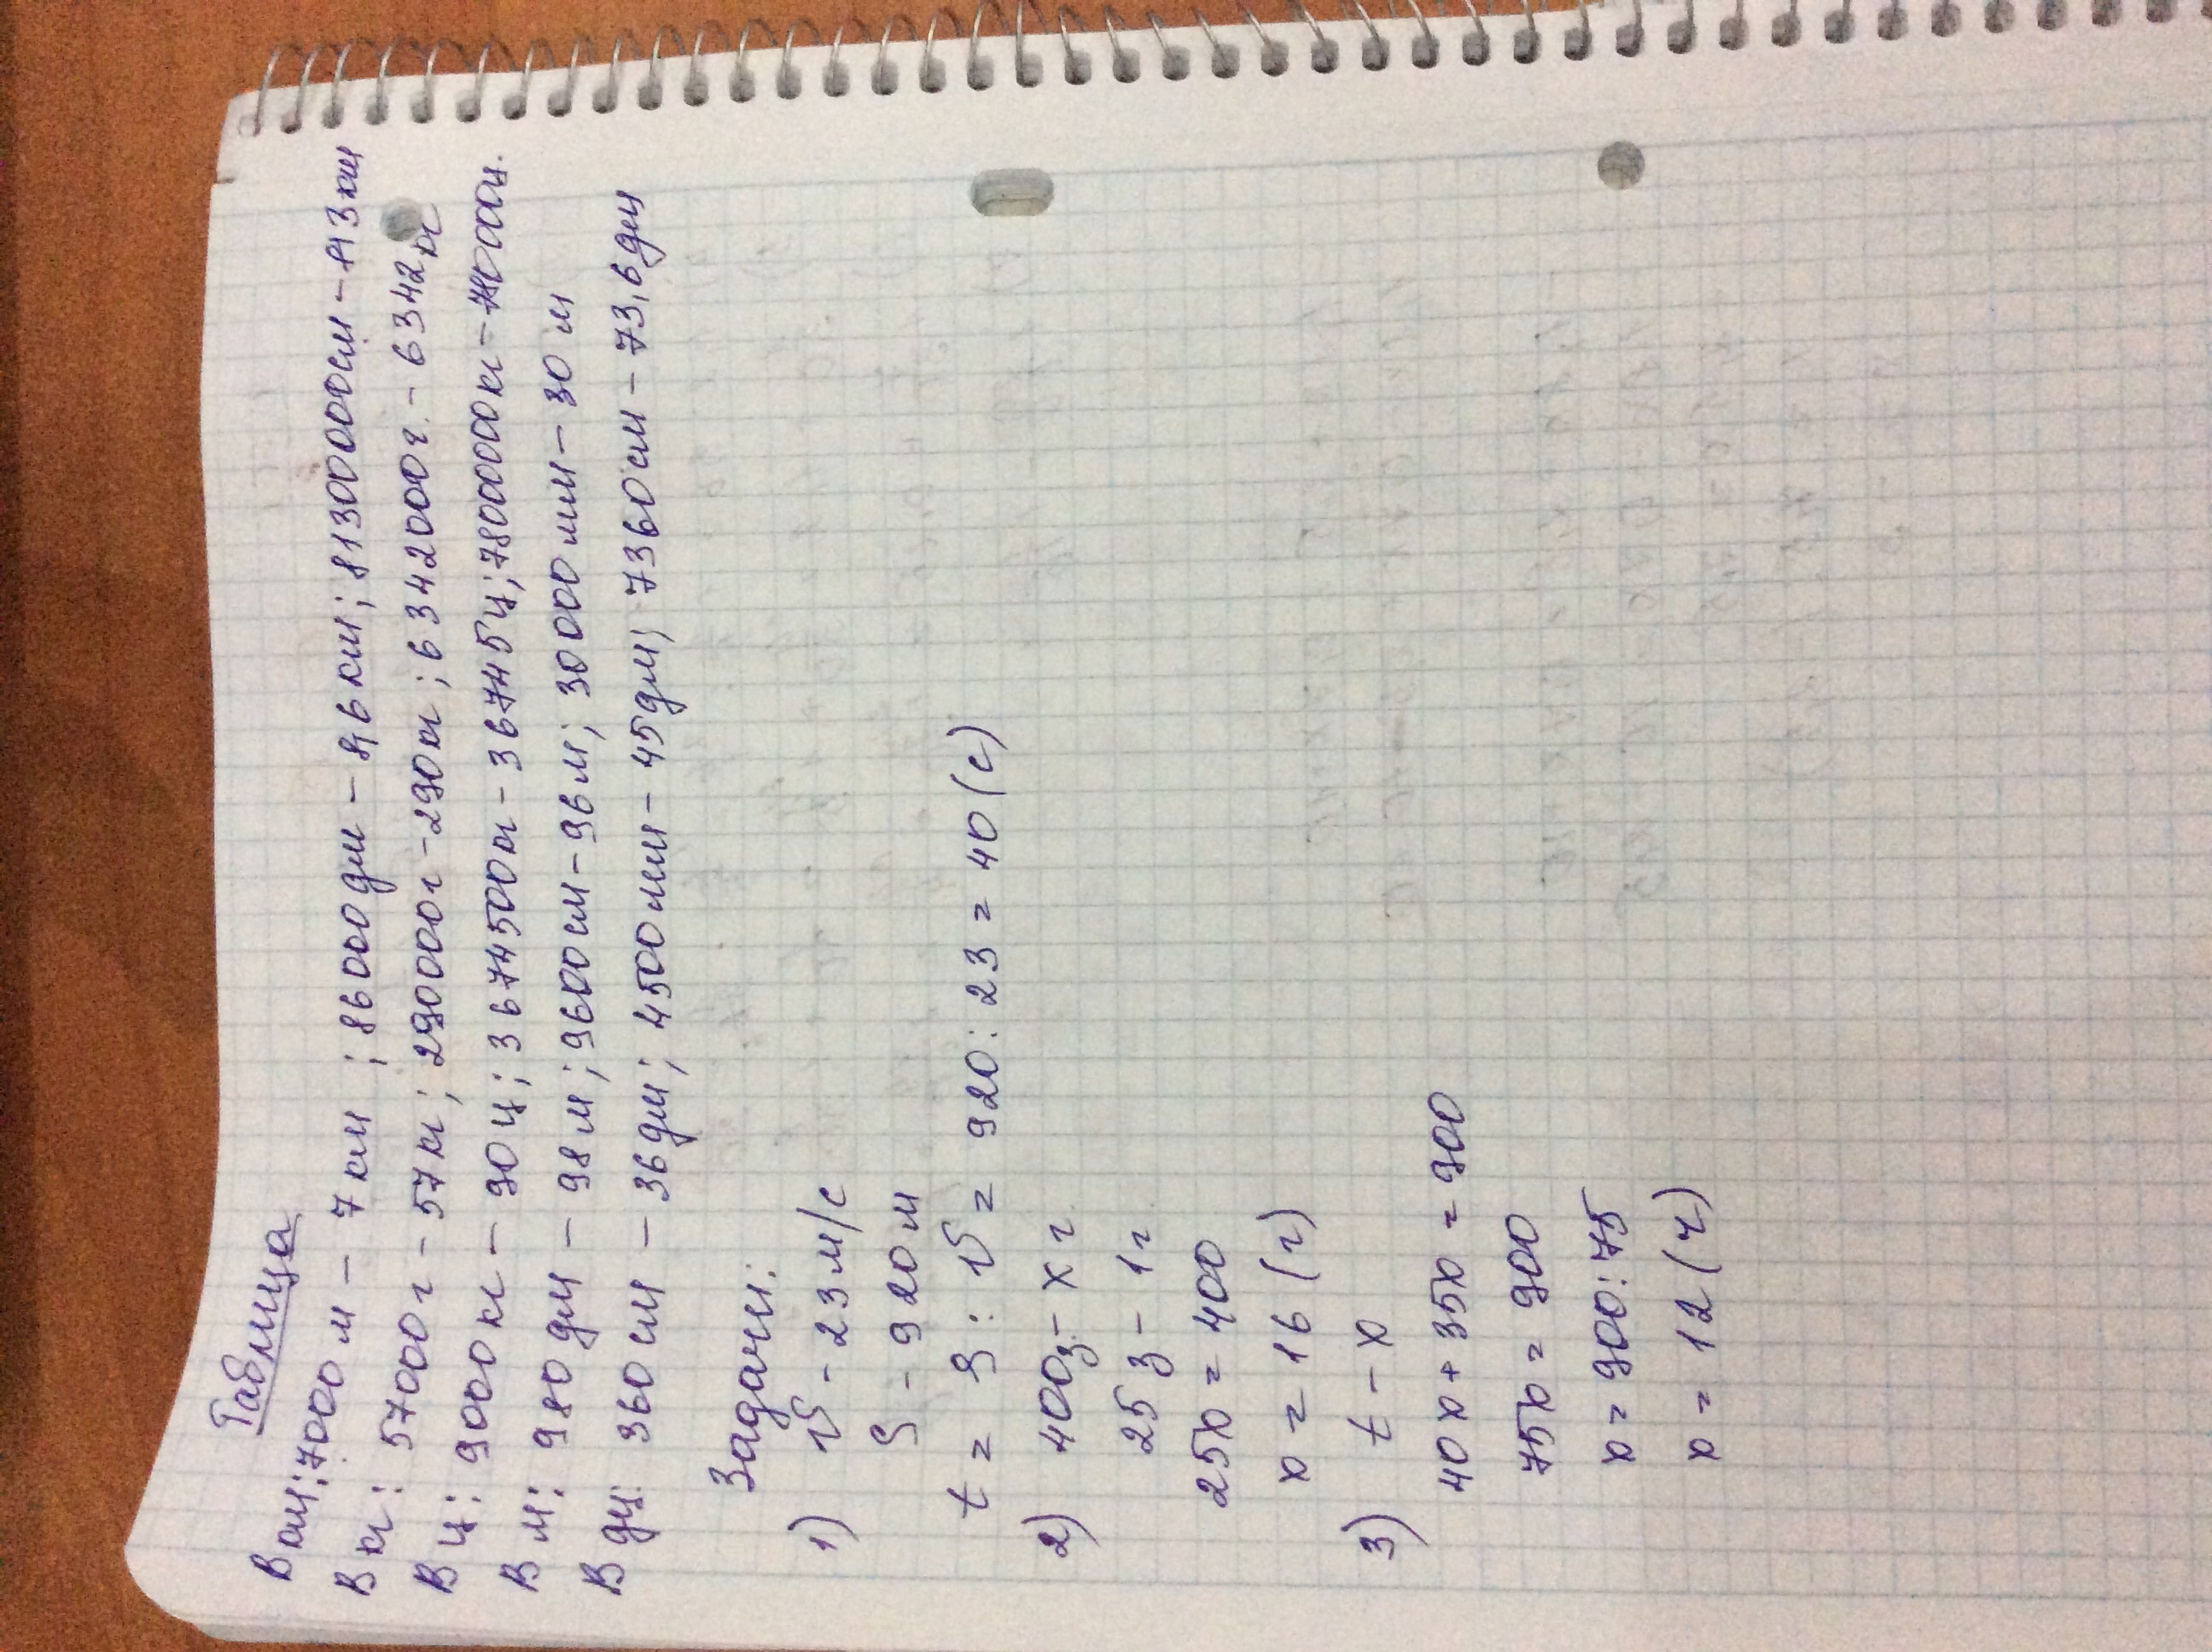 Таблица
В км: 7000 м - 7 км ; 86000 дм - 8,6 км; 81300000 см - 813 км
В кг: 57000 г - 57 кг; 290000 г - 290 кг; 6342000 г - 6342 кг
В ц: 9000 кг - 90 ц; 3674500 кг - 36745 ц; 7800000 кг - 78000 ц.
В м: 980 дм - 98 м; 9600 см - 96 м; 30000 мм - 30 м
В дм: 360 см - 36 дм; 4500 мм - 45 дм; 7360 см - 73,6 дм
Задачи:
1) v - 23 м/с
S - 920 м
t = S : v = 920 : 23 = 40 (с)
2) 400 з - x г
25 з - 1 г
25x = 400
x = 16 (г)
3) t - x
40x + 35x = 900
75x = 900
x = 900 : 75
x = 12 (ч)